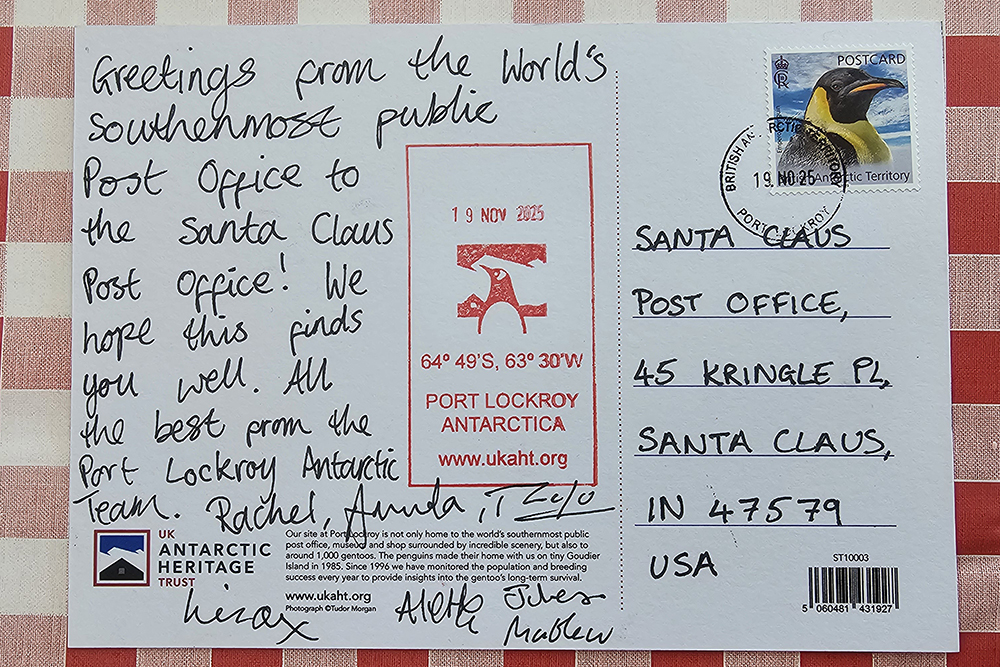 Greetings from the World's
southenmost public
Post Office to
the Santa Claus
Post Office! We
hope this finds
you well. All
the best from the
Port Lockroy Antarctic
Team. Rachel,
19 NOV 2025
64° 49'S, 63° 30'W
PORT LOCKROY
ANTARCTICA
www.ukaht.org
UK
ANTARCTIC
HERITAGE
TRUST
Our site at Port Lockroy is not only home to the world's southernmost public
post office, museum and shop surrounded by incredible scenery, but also to
around 1,000 gentoos. The penguins made their home with us on tiny Goudier
Island in 1985. Since 1996 we have monitored the population and breeding
success every year to provide insights into the gentoo's long-term survival.
www.ukaht.org
Photograph ©Tudor Morgan
POSTCARD
Antarctic Territory
BRITISH ANTARCTIC TERRITORY
19 NO 25
PORT LOCKROY
SANTA CLAUS
POST OFFICE,
45 KRINGLE PL,
SANTA CLAUS,
IN 47579
USA
ST10003
5 060481 431927